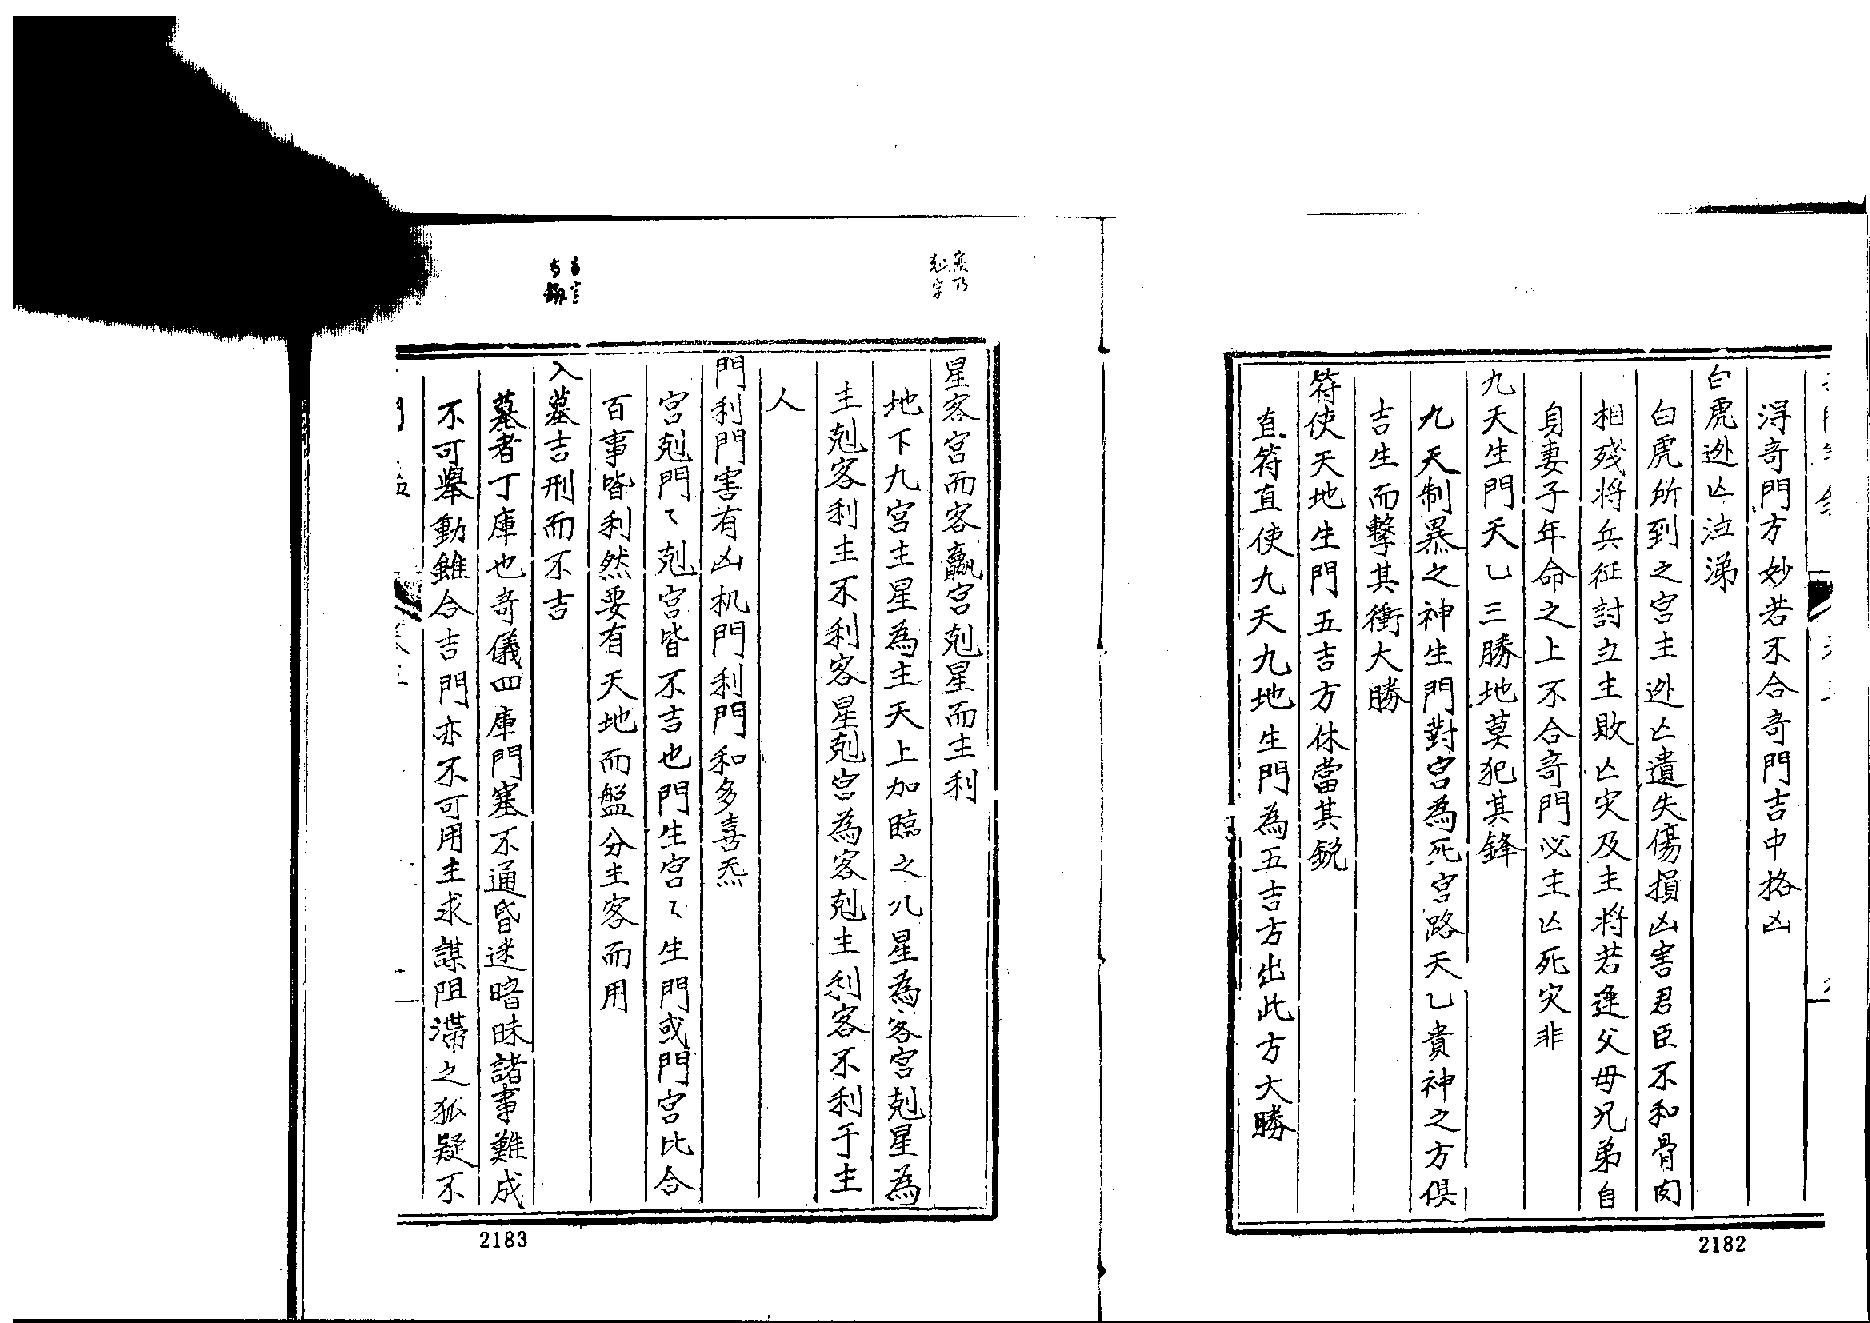 淂奇門方妙若不合奇門吉中格凶
白虎迯亾泣涕
白虎所到之宮主迯亾遺失傷損凶害君臣不和骨肉
相殘将兵征討立主敗亾灾及主将若逢父母兄弟自
身妻子年命之上不合奇門必主亾死灾非
九天生門天乙三勝地莫犯其鋒
九天制暴之神生門對宮為死宮路天乙貴神之方俱
吉生而擊其衝大勝
符使天地生門五吉方休當其銳
直符直使九天九地生門為五吉方出此方大勝
2182
星客宮而客贏宮剋星而主利
地下九宮主星為主天上加臨之八星為客宮剋星為
主剋客利主不利客星剋宮為客剋主利客不利于主
人
門利門害有凶机門利門和多喜炁
宮剋門〻剋宮皆不吉也門生宮〻生門或門宮比合
百事皆利然要有天地而盤分主客而用
入墓吉刑而不吉
墓者丁庫也奇儀四庫門塞不通昏迷暗昧諸事難成
不可舉動雖合吉門亦不可用主求謀阻滯之狐疑不
2183